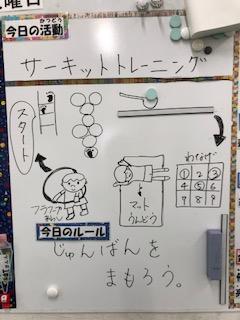 曜日
かつどう
今日の活動
サーキットトレーニング
スタート
わなげ
1 2 3
4 5 6
7 8 9
フラフープ
まわし
マット
うんどう
今日のルール
じゅんばんを
まもろう。